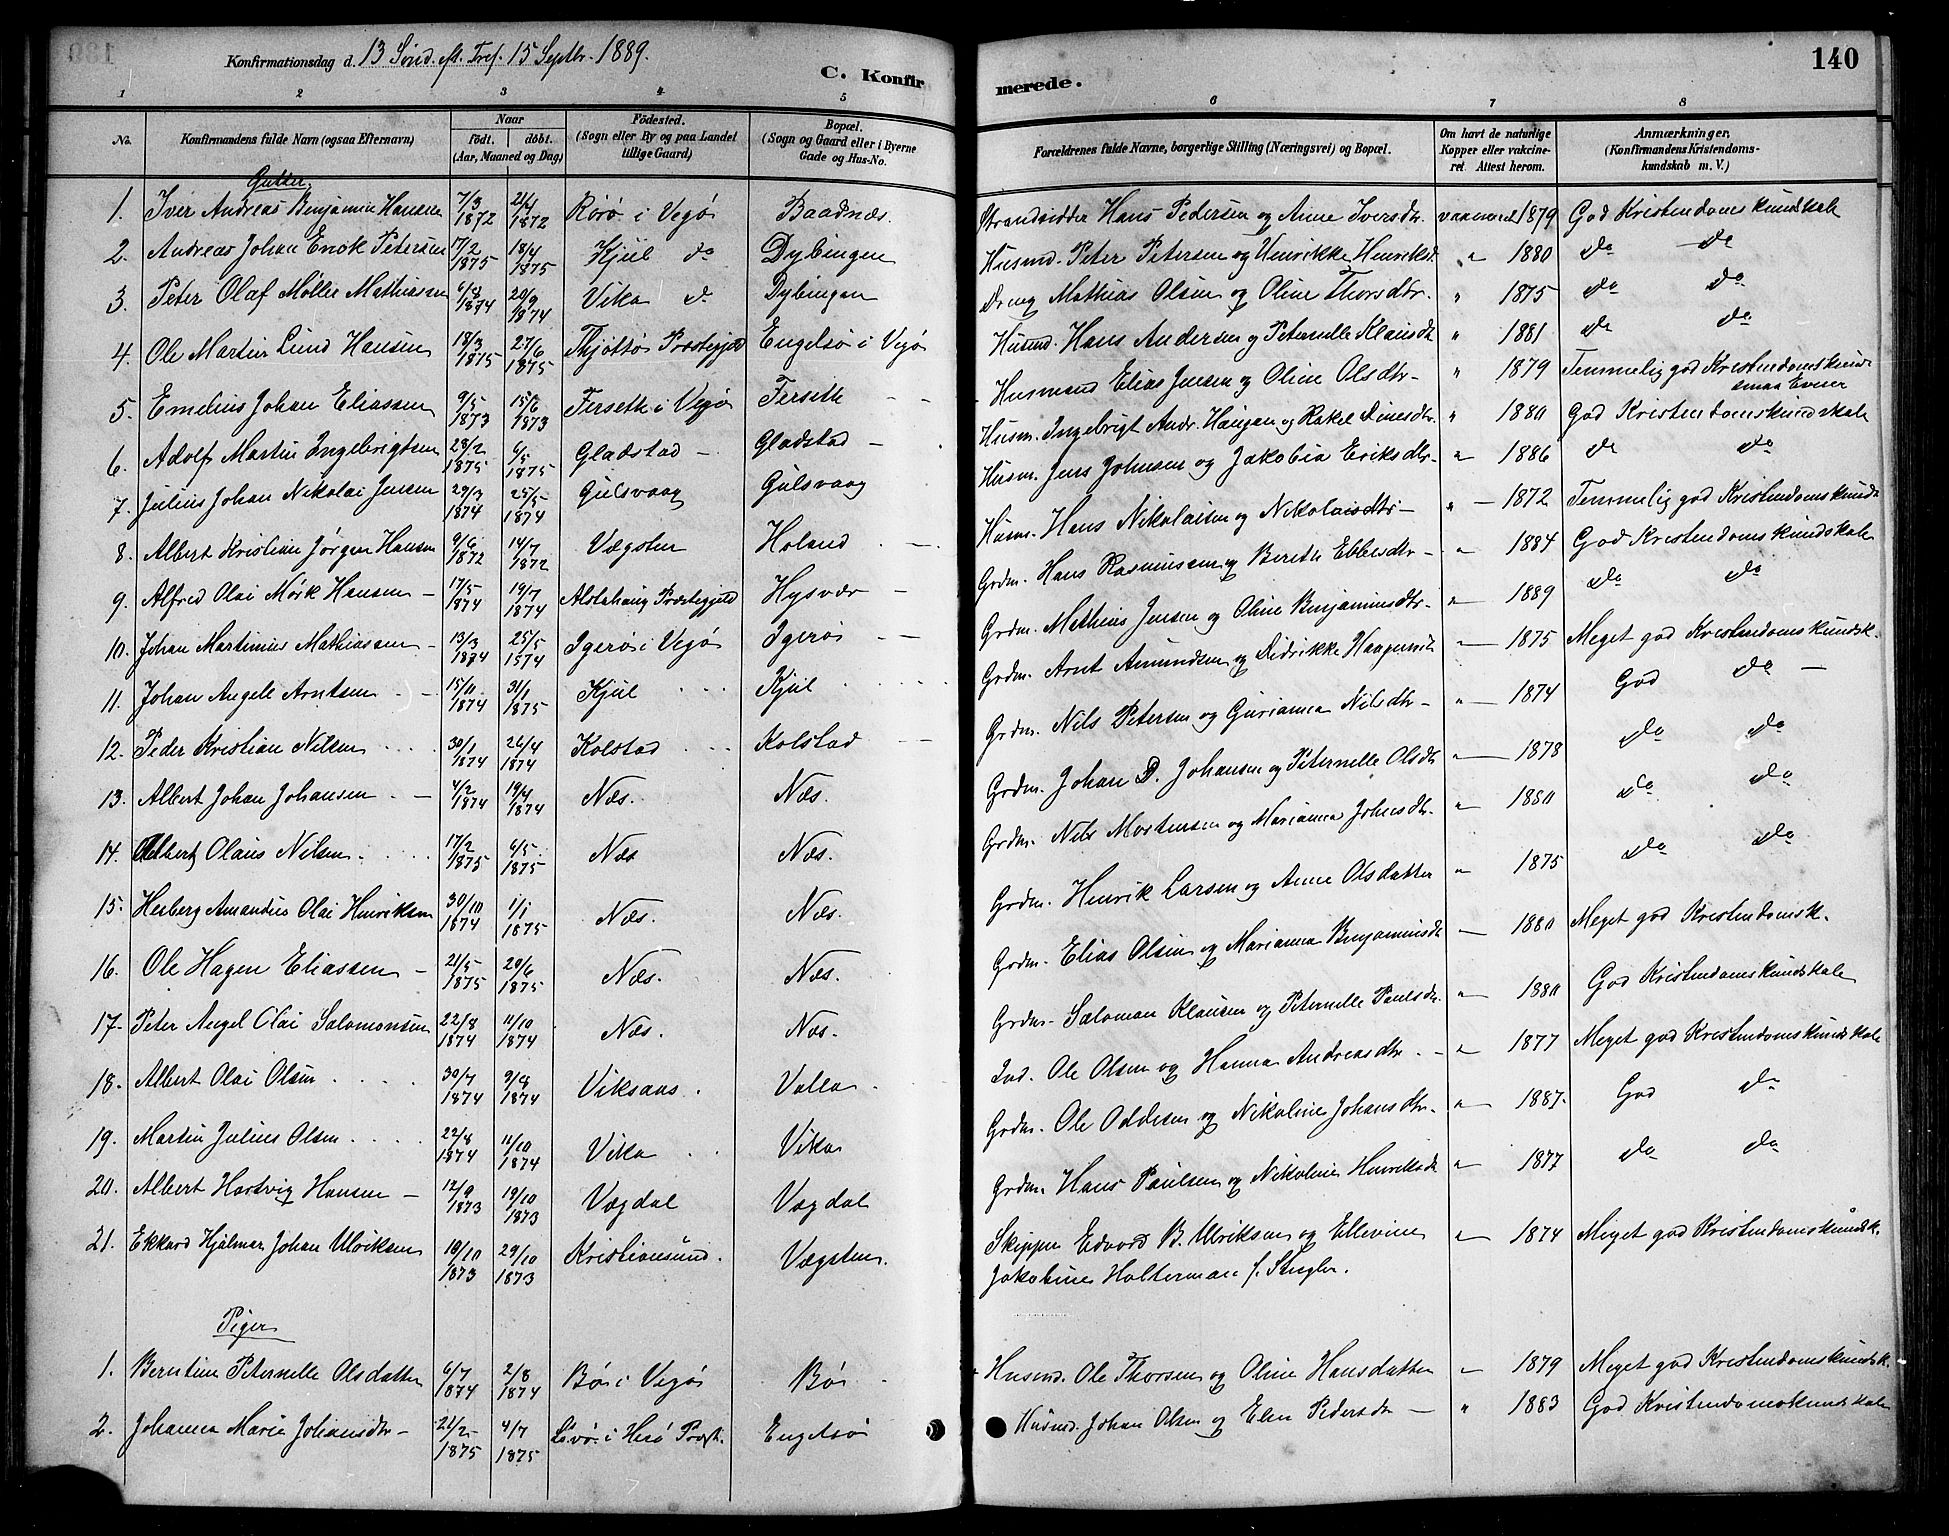 Konfirmationsdag d. 13 Sønd. eft. Tref. 15 Septbr. 1889.
C. Konfirmerede.
140
1 2 3 4 5 6 7 8
No. Konfirmandens fulde Navn (ogsaa Efternavn) Naar födt. döbt. (Aar, Maaned og Dag) Födested. (Sogn eller By og paa Landet tillige Gaard.) Bopæl. (Sogn og Gaard eller i Byerne Gade og Hus-No. Forældrenes fulde Navne, borgerlige Stilling (Næringsvei) og Bopæl. Om havt de naturlige Kopper eller vakcineret. Attest herom. Anmærkninger. (Konfirmandens Kristendomskundskab m. V.)
Gutter
1. Iver Andreas Benjamin Hansen 7/3 1872 21/4 1872 Rørø i Vegø Baadnæs. Strandsidder Hans Pedersen og Anne Iversdtr. vaccineret 1879 God Kristendomskundskab
2. Andreas Johan Enok Petersen 17/2 1875 18/4 1875 Kjul do Dybingen Husmd. Peter Petersen og Henrikke Henriksdtr. " 1880 do do
3. Peter Olaf Møller Mathiassen 6/8 1874 20/9 1874 Vika do Dybingen Dreng Mathias Olsen og Oline Thorsdtr. " 1875 do do
4. Ole Martin Lund Hansen 18/3 1875 27/6 1875 Thjøttø Præstegjeld Engelsø i Vegø Husmd. Hans Andersen og Peternelle Klausdtr " 1881 do do
5. Emelius Johan Eliassen 9/5 1873 15/6 1873 Ferseth i Vegø Ferseth - - Husmand Elias Jensen og Oline Olsdtr - " 1879 Temmelig god Kristendomskundsk. smaa Evner
6. Adolf Martin Ingebrigtsen 28/2 1875 6/5 1875 Gladstad - Gladstad - Husm. Ingebrigt Andr. Haugan og Rakel Dinesdtr. " 1880 God Kristendomskundskab
7. Julius Johan Nikolai Jensen 29/3 1874 25/5 1874 Gulsvaag Gulsvaag Husm. Jens Johnsen og Jakobia Eriksdtr - " 1886 do do
8. Albert Kristian Jørgen Hansen 9/6 1872 14/7 1872 Vægsten Holand - Husm. Hans Nikolaisen og Nikolaisdtr - " - 1872 Temmelig god Kristendomskundsk
9. Alfred Olai Mørk Hansen - 17/5 1874 19/7 1874 Alstahaug Præstegjeld Hysvær - Grdm. Hans Rasmussen og Berethe Ebbesdtr - " 1884 God Kristendomskundskab
10. Johan Martinius Mathiassen - 13/3 1874 25/5 1574 Igerøi Vegø Igerøi - Grdm. Mathias Jensen og Oline Benjaminsdtr. " 1889 do do
11. Johan Angell Arntsen - 15/11 1874 31/1 1875 Kjul Kjul Grdm. Arnt Amundsen og Didrikke " 1875 Meget god Kristendomskundsk.
12. Peder Kristian Nilsen 30/1 1874 26/4 1874 Kolstad Kolstad - Grdm. Nils Petersen og Gurianna Nilsdtr - " 1874 God do -
13. Albert Johan Johansen. - 4/2 1874 19/4 1874 Næs. Næs. Grdm. Johan D. Johansen og Peternelle Olsdtr " 1878 do do
14. Albert Olaus Nilsen. 17/2 1875 6/5 1875 Næs Næs. Grdm. Nils Mortensen og Marianna Johnsdtr. " 1880 do do
15. Herberg Amandus Olai Henriksen 30/10 1874 1/1 1875 Næs. Næs. Grdm. Henrik Larsen og Anne Olsdatter " 1875 do do
16. Ole Hagen Eliassen - 21/5 1875 20/6 1875 Næs. Næs. Grdm. Elias Olsen og Marianna Benjaminsdtr - 1880 Meget god Kristendomsk.
17. Peter Angel Olai Salomonsen 22/8 1874 11/10 1874 Næs. Næs. Grdm. Salomon Klausen og Peternelle Paulsdtr. " 1880 God Kristendomskundskab
18. Albert Olai Olsen 30/7 1874 9/8 1874 Viksaas Valla Ind. Ole Olsen og Hanna Andreasdtr. - " 1877 Meget god Kristendomskundskab
19. Martin Julius Olsen 22/8 1874 11/10 1874 Vika Vika Grdm. Ole Oddesen og Nikoline Johansdtr. " 1887. God do
20. Albert Hartvig Hansen - 12/9 1873 19/10 1873 Vægdal Vægdal Grdm. Hans Paulsen og Nikoline Henriksdtr " 1877 do do
21. Ekkard Hjalmar Johan Ulriksen 18/10 1873 29/10 1873 Kristiansund. Vægsten. Skipper Edvard B. Ulriksen og Ellevine " 1874 Meget god Kristendomskundsk.
Jakobine Holterman f. Stegler.
Piger
1. Berntine Peternelle Olsdatter 6/7 1874 2/8 1874 Bø i Vegø Bø Husmd. Ole Thorsen og Oline Hansdatter " 1879 Meget god Kristendomskundsk.
2. Johanna Marie Johansdtr - 22/2 1875 4/7 1875 Løvø i Herø Præst. Engelsø Husmd. Johan Olsen og Elen Pedersdtr - " 1883 God Kristendomskundskab